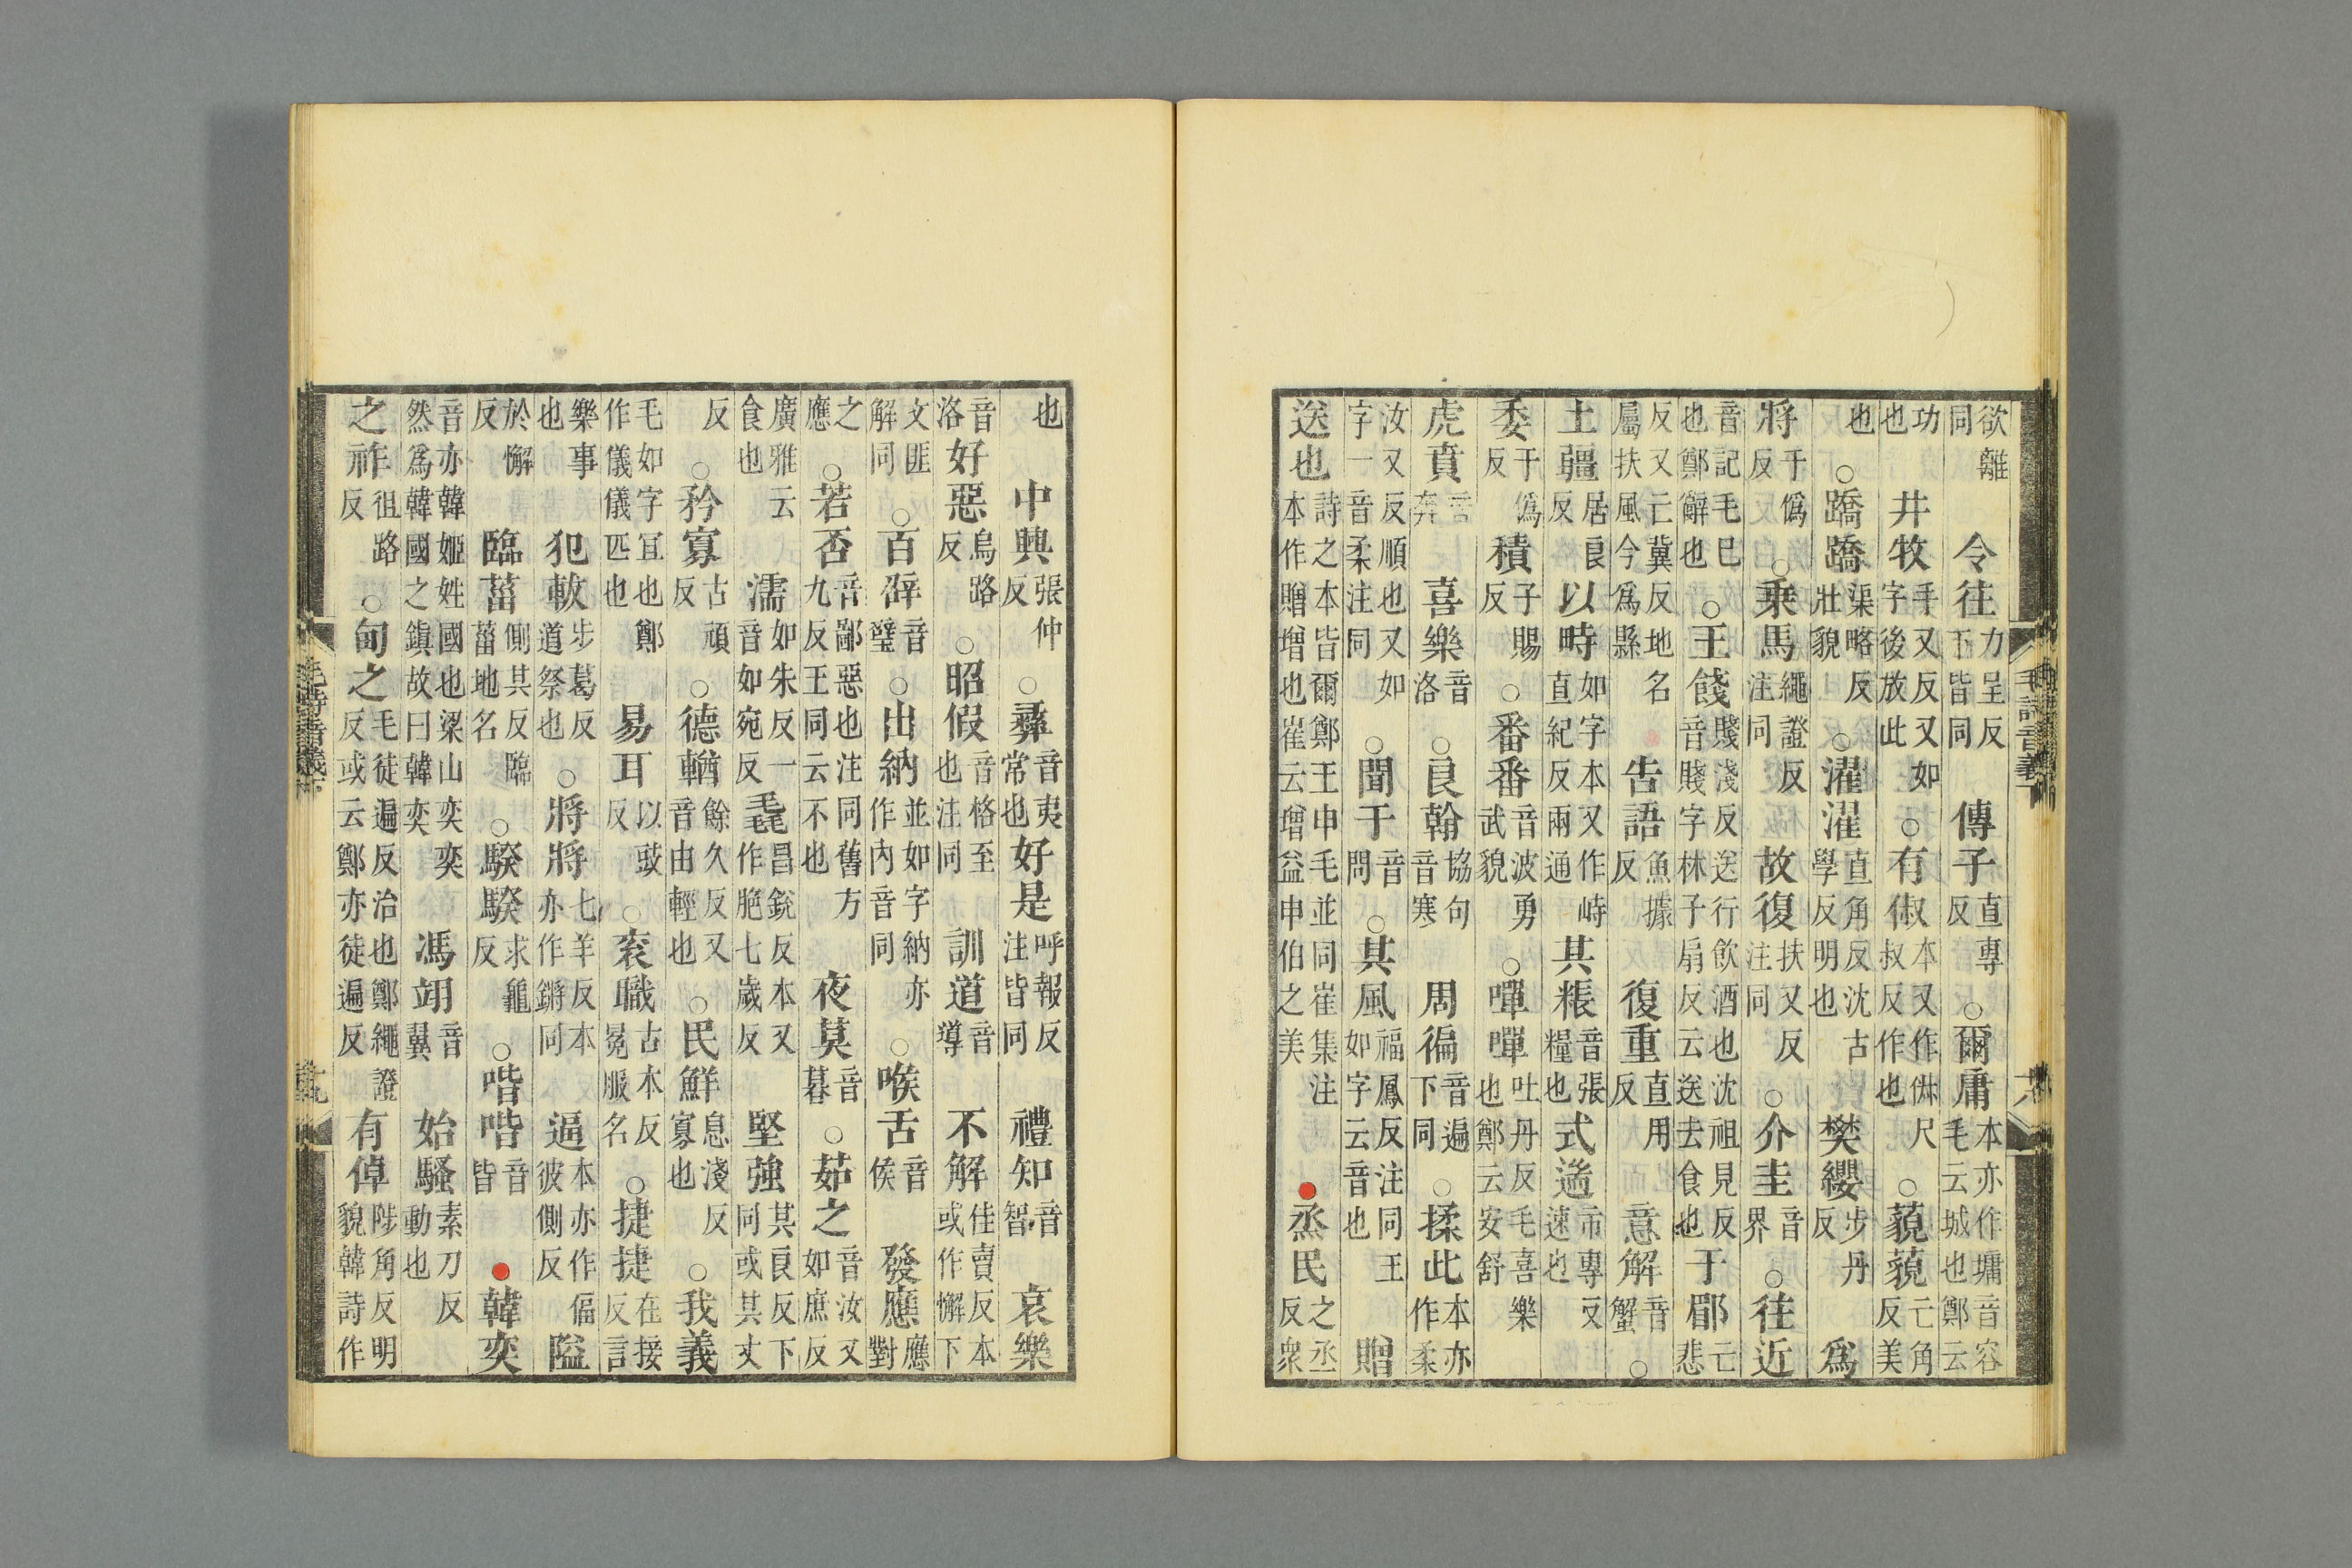 欲離同 令往力呈反下皆同 傳子直專反 ○爾庸本亦作墉音容毛云城也鄭云
功也 井牧手又反又如字後放此 ○有俶本又作㑐尺叔反作也 ○藐藐亡角反美
也 ○蹻蹻渠略反壯貌 ○濯濯直角反沈古學反明也 樊纓步丹反 爲
將于僞反 ○乗馬繩證反注同 故復扶又反注同 ○介圭音界 ○往近
音記毛巳也鄭辭也 ○王餞賤淺反送行飲酒也沈祖見反音賤字林子扇反云送去食也 于郿亡悲
反又亡冀反地名屬扶風今爲縣 告語魚據反 復重直用反 意解音蟹 ○
土疆居良反 以時如字本又作峙直紀反兩通 其粻音張糧也 式遄市專反速也
委于僞反 積子賜反 ○番番音波勇武貌 ○嘽嘽吐丹反毛喜樂也鄭云安舒
虎賁音奔 喜樂音洛 ○良翰協句音寒 周徧音遍下同 ○揉此本亦作柔
汝又反順也又如字一音柔注同 ○聞于音問 ○其風福鳳反注同王如字云音也 贈
送也詩之本皆爾鄭王申毛並同崔集注本作贈增也崔云增益申伯之美 ●烝民之丞反衆
毛詩音義下 十八
也 中興張仲反 ○彝音夷常也 好是呼報反注皆同 禮知音智 哀樂
音洛 好惡烏路反 ○昭假音格至也注同 訓道音導 不解佳賣反本或作懈下
文匪解同 ○百辟音璧 ○出納並如字納亦作內音同 ○喉舌音侯 發應應對
之應 ○若否音鄙惡也注同舊方九反王同云不也 夜莫音暮 ○茹之音汝又如庶反
廣雅云食也 濡如朱反一音如宛反 毳昌銳反本又作脃七歲反 堅強其良反下同或其丈
反 ○矜寡古頑反 ○德輶餘久反又音由輕也 ○民鮮息淺反寡也 ○我義
毛如字宜也鄭作儀儀匹也 易耳以豉反 ○衮職古本反冕服名 ○捷捷在接反言
樂事也 犯軷步葛反道祭也 ○將將七羊反本亦作鏘同 逼本亦作偪彼側反 隘
於懈反 臨菑側其反臨菑地名 ○騤騤求龜反 ○喈喈音皆 ●韓奕
音亦韓姬姓國也梁山奕奕然爲韓國之鎮故曰韓奕 馮翊音翼 始騷素刀反動也
之祚徂路反 ○甸之毛徒遍反治也鄭繩證反或云鄭亦徒遍反 有倬陟角反明貌韓詩作
毛詩音義下 十九